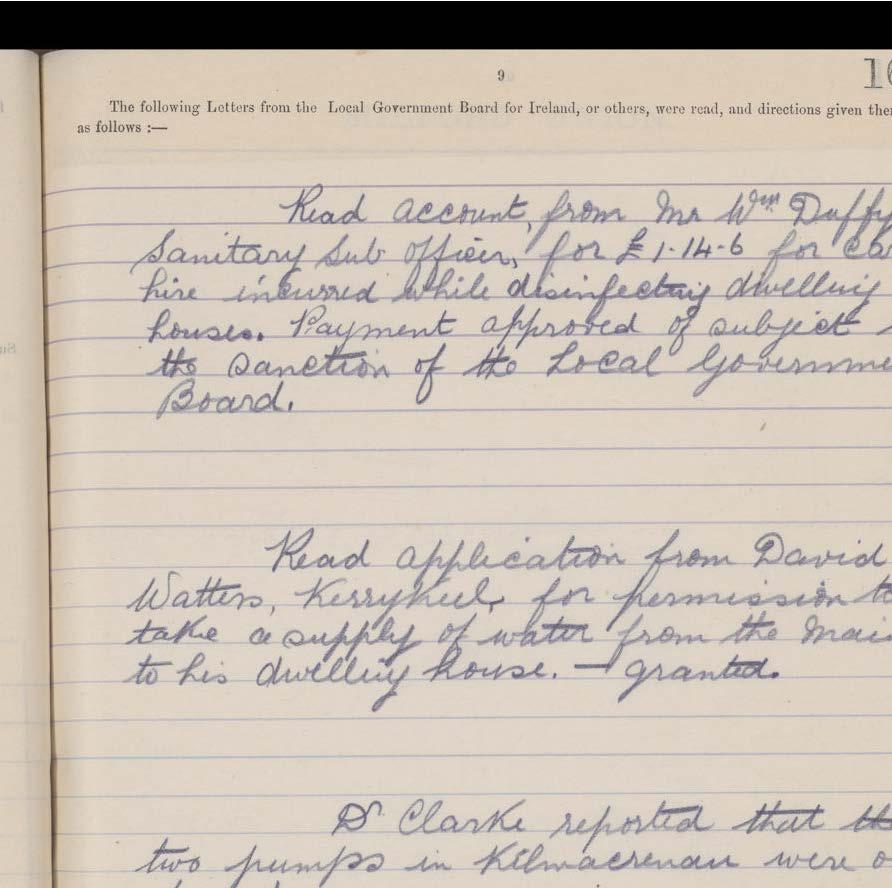 9
The following Letters from the Local Government Board for Ireland, or others, were read, and directions given
as follows :—
Read account, from Mr Wm Duffy
Sanitary Sub officer, for £1-14-6 for
hire incurred while disinfecting dwelling
houses. Payment approved of subject
the sanction of the Local
Board.
Read application from David
Watters, Kerrykeel, for permission to
take a supply of water from the
to his dwelling house. — granted.
Dr Clarke reported that
two pumps in Kilmacrenan were